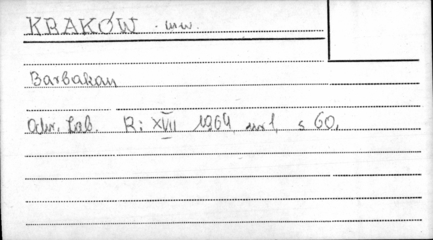 KRAKÓW - m.w.
Barbakan
Odw. Lab. R: XVII 1964 nr 1, s 60.